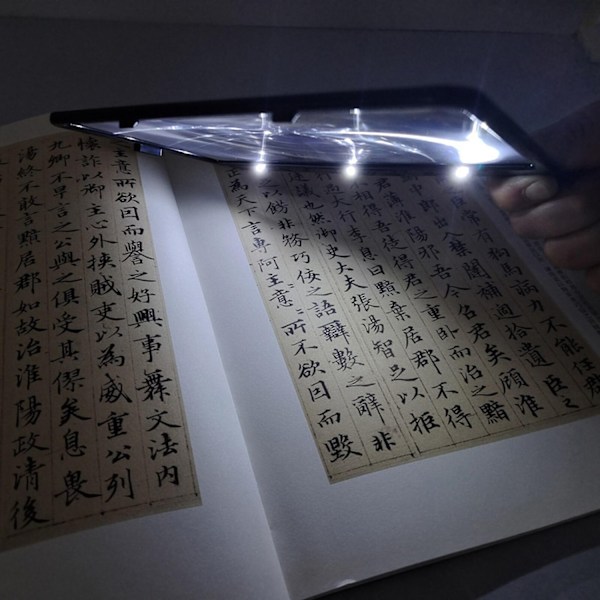 臣常有狗馬病力不能任郡
中郎出入禁闥補過拾遺臣之
君薄淮陽邪吾今召君矣顧淮
不相得吾徒得君之重臥而治之黯
過大行李息曰黯棄居郡不得
廷議也然御史大夫張湯智足以拒
以飾非務巧佞之語辯數之辭非
正為天下言專阿主意〻〻所不欲因而毀
主意所欲因而譽之好興事舞文法內
懷詐以御主心外挾賊吏以為威重公列
九卿不早言之公與之俱受其僇矣息畏
湯終不敢言黯居郡如故治淮陽政清後